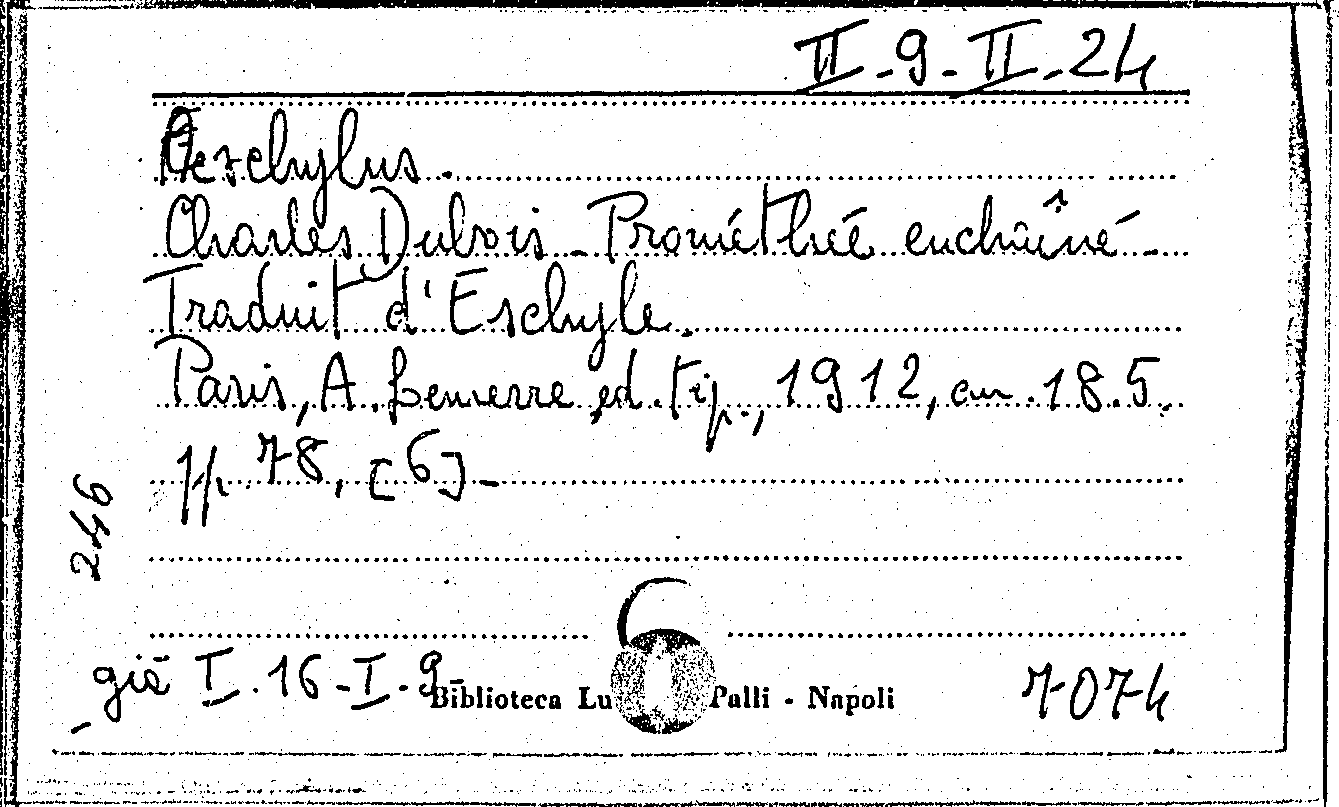 II-9-II-24
Aeschylus.
Charles Dubois - Prométhée enchaîné -
Traduit d'Eschyle.
Paris, A. Lemerre ed. tip., 1912, cm. 18.5,
pp. 78, [6] -
246
già I.16-I.9-
Biblioteca Lu Palli - Napoli
7074